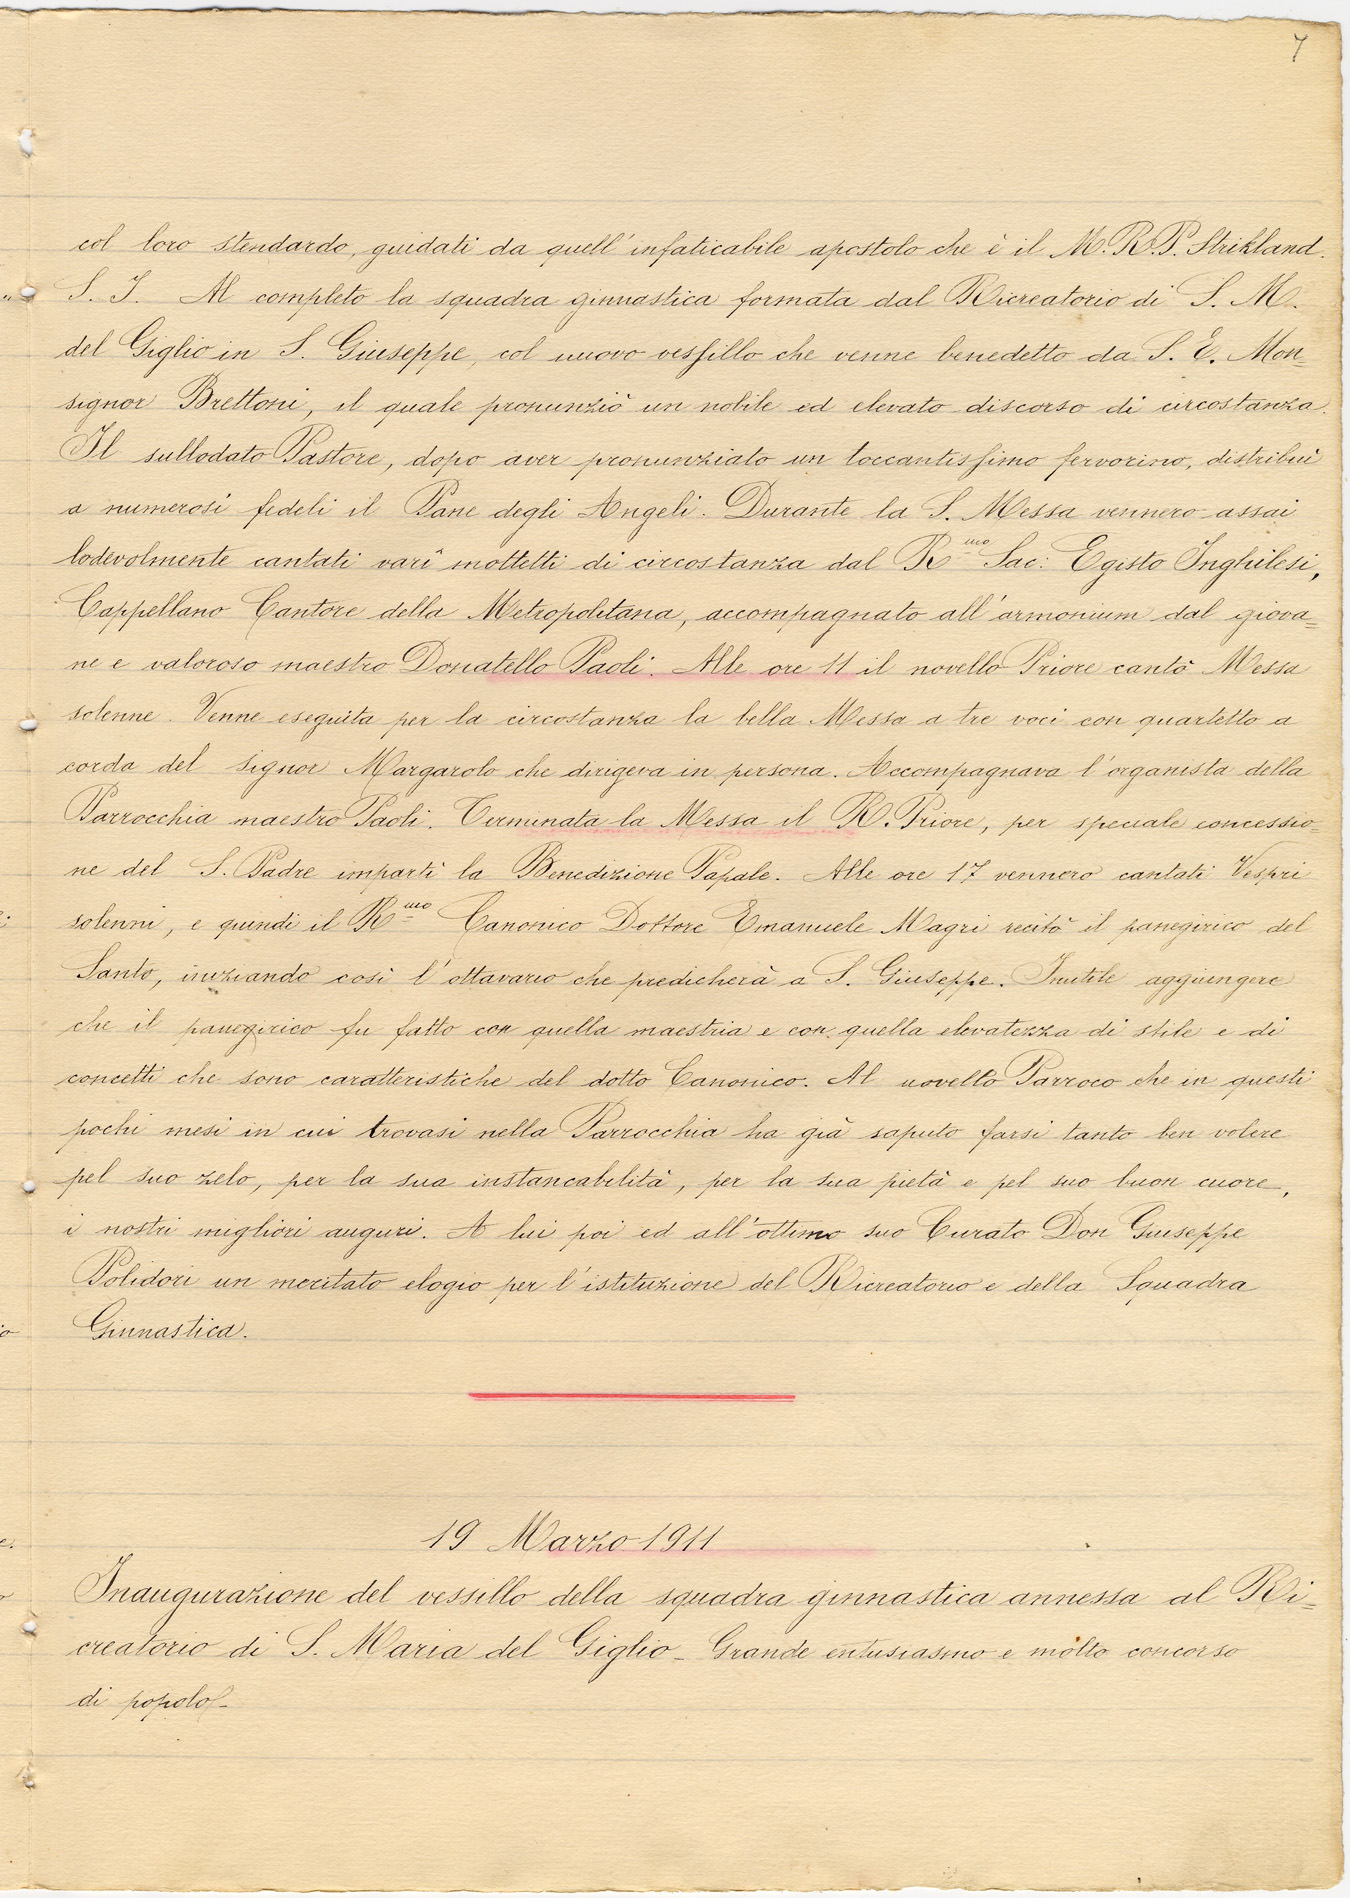 7
col loro stendardo, guidati da quell'infaticabile apostolo che è il M. R. P. Strikland.
S. J. Al completo la squadra ginnastica formata dal Ricreatorio di S. M.
del Giglio in S. Giuseppe, col nuovo vessillo che venne benedetto da S. E. Mon=
signor Brettoni, il quale pronunziò un nobile ed elevato discorso di circostanza.
Il sullodato Pastore, dopo aver pronunziato un toccantissimo fervorino, distribuì
a numerosi fedeli il Pane degli Angeli. Durante la S. Messa vennero assai
lodevolmente cantati varî mottetti di circostanza dal Rmo Sac: Egisto Inghilesi,
Cappellano Cantore della Metropolitana, accompagnato all'armonium dal giova=
ne e valoroso maestro Donatello Paoli. Alle ore 11 il novello Priore cantò Messa
solenne. Venne eseguita per la circostanza la bella Messa a tre voci con quartetto a
corda del signor Margarolo che dirigeva in persona. Accompagnava l'organista della
Parrocchia maestro Paoli. Terminata la Messa il R. Priore, per speciale concessio=
ne del S. Padre impartì la Benedizione Papale. Alle ore 17 vennero cantati Vespri
solenni, e quindi il Rmo Canonico Dottore Emanuele Magri recitò il panegirico del
Santo, iniziando così l'ottavario che predicherà a S. Giuseppe. Inutile aggiungere
che il panegirico fu fatto con quella maestria e con quella elevatezza di stile e di
concetti che sono caratteristiche del dotto Canonico. Al novello Parroco che in questi
pochi mesi in cui trovasi nella Parrocchia ha già saputo farsi tanto ben volere
pel suo zelo, per la sua instancabilità, per la sua pietà e pel suo buon cuore,
i nostri migliori auguri. A lui poi ed all'ottimo suo Curato Don Giuseppe
Polidori un meritato elogio per l'istituzione del Ricreatorio e della Squadra
Ginnastica.
19 Marzo 1911
Inaugurazione del vessillo della squadra ginnastica annessa al Ri=
creatorio di S. Maria del Giglio - Grande entusiasmo e molto concorso
di popolo -